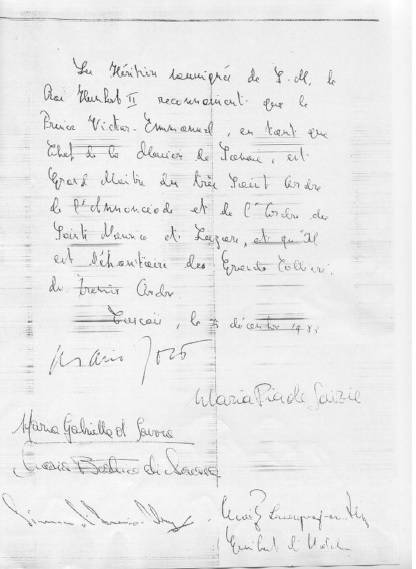 Les Héritiers soussignés de S.M. le
Roi Humbert II reconnaissent que le
Prince Victor-Emmanuel, en tant que
Chef de la Maison de Savoie, est
Grand Maître du très Saint Ordre
de l'Annonciade et de l'Ordre des
Saints Maurice et Lazare, et qu'Il
est dépositaire des Grands Colliers
du Ordre
Cascais, le décembre
Maria Pia de Savoie
Maria Gabriella di Savoia
Maria Beatrice di Savoia